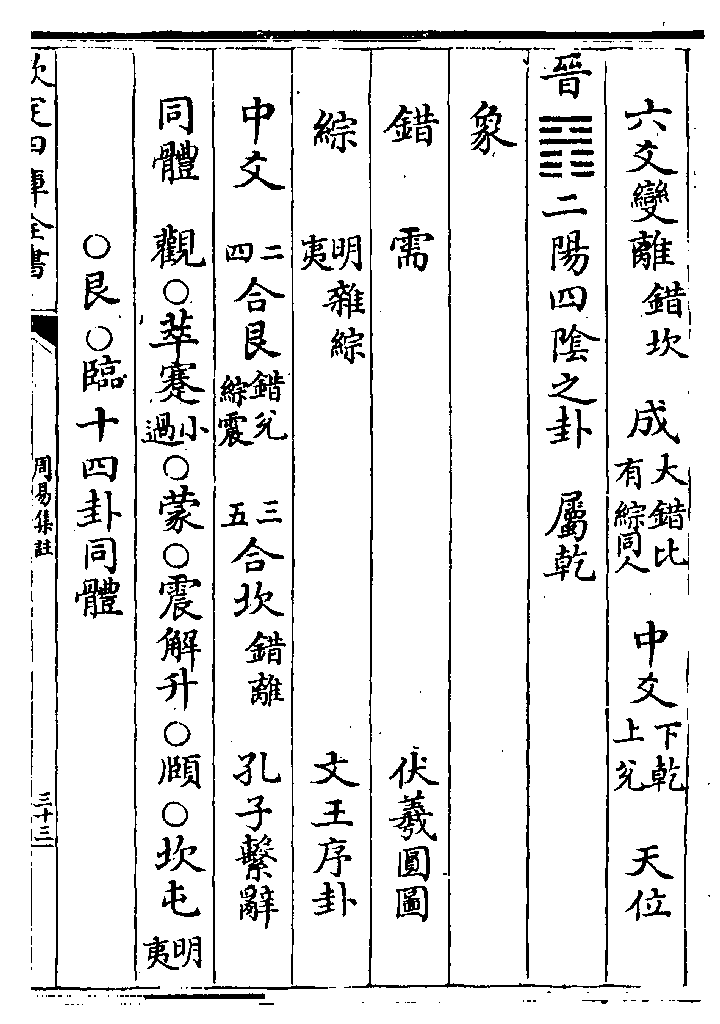 六爻變離錯坎　成大有錯比綜同人　中爻下乾上兌　天位
晉䷢二陽四陰之卦　屬乾
象
錯　需　伏羲圓圖
綜　明夷雜綜　文王序卦
中爻　二四合艮錯兌綜震　三五合坎錯離　孔子繫辭
同體　觀○萃蹇小過○蒙○震解升○頤○坎屯明夷
○艮○臨十四卦同體
欽定四庫全書　周易集註　三十三